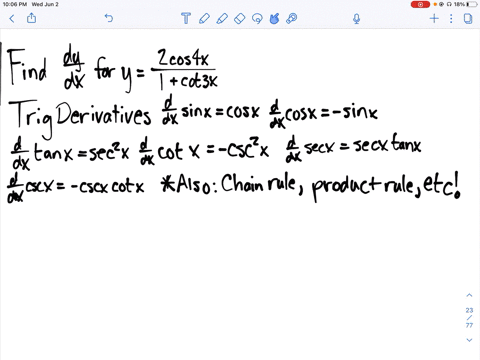 10:06 PM Wed Jun 2
18%
Find dy/dx for y = 2cos4x / 1 + cot3x
Trig Derivatives d/dx sinx = cosx d/dx cosx = -sinx
d/dx tanx = sec²x d/dx cot x = -csc²x d/dx secx = secx tanx
d/dx cscx = -cscx cotx *Also: Chain rule, product rule, etc!
23
/
77